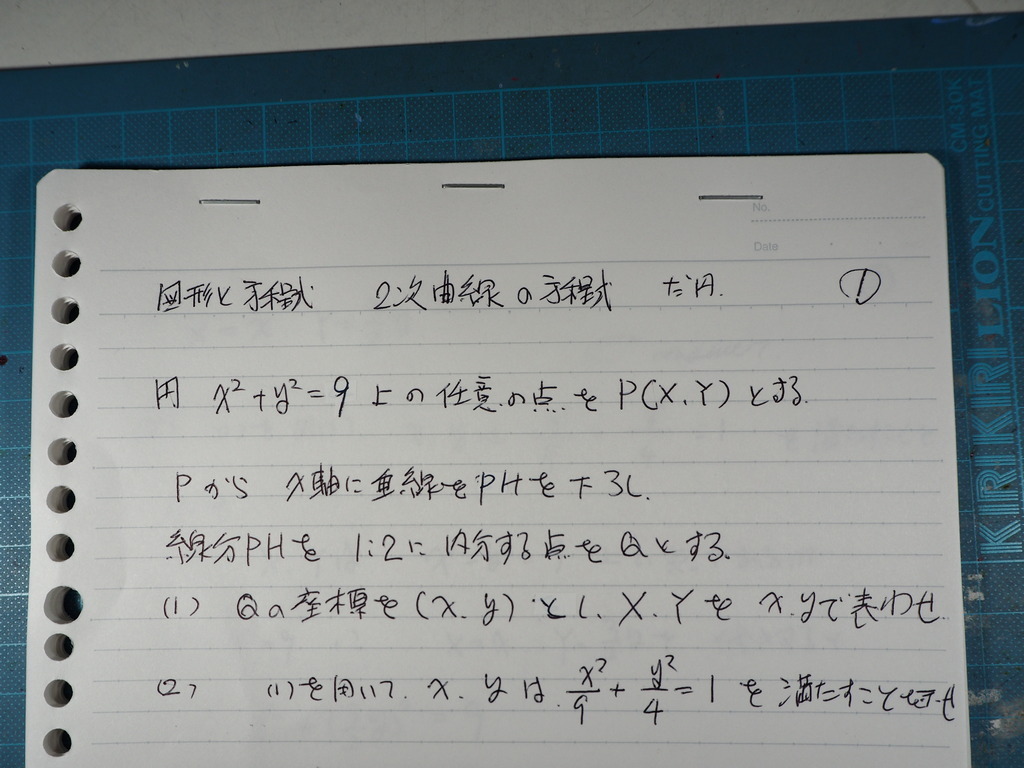 No.
Date
図形と方程式 2次曲線の方程式 だ円. ①
円 x²+y²=9 上の任意の点を P(X,Y)とする.
Pから x軸に垂線をPHを下ろし.
線分PHを 1:2に内分する点をQとする.
(1) Qの座標を(x.y)とし、X.Yを x.yで表わせ.
(2) (1)を用いて. x.yは x²/9 + y²/4 = 1 を満たすことを示せ
KIRIKIRI LION CUTTING MAT
CM 30K